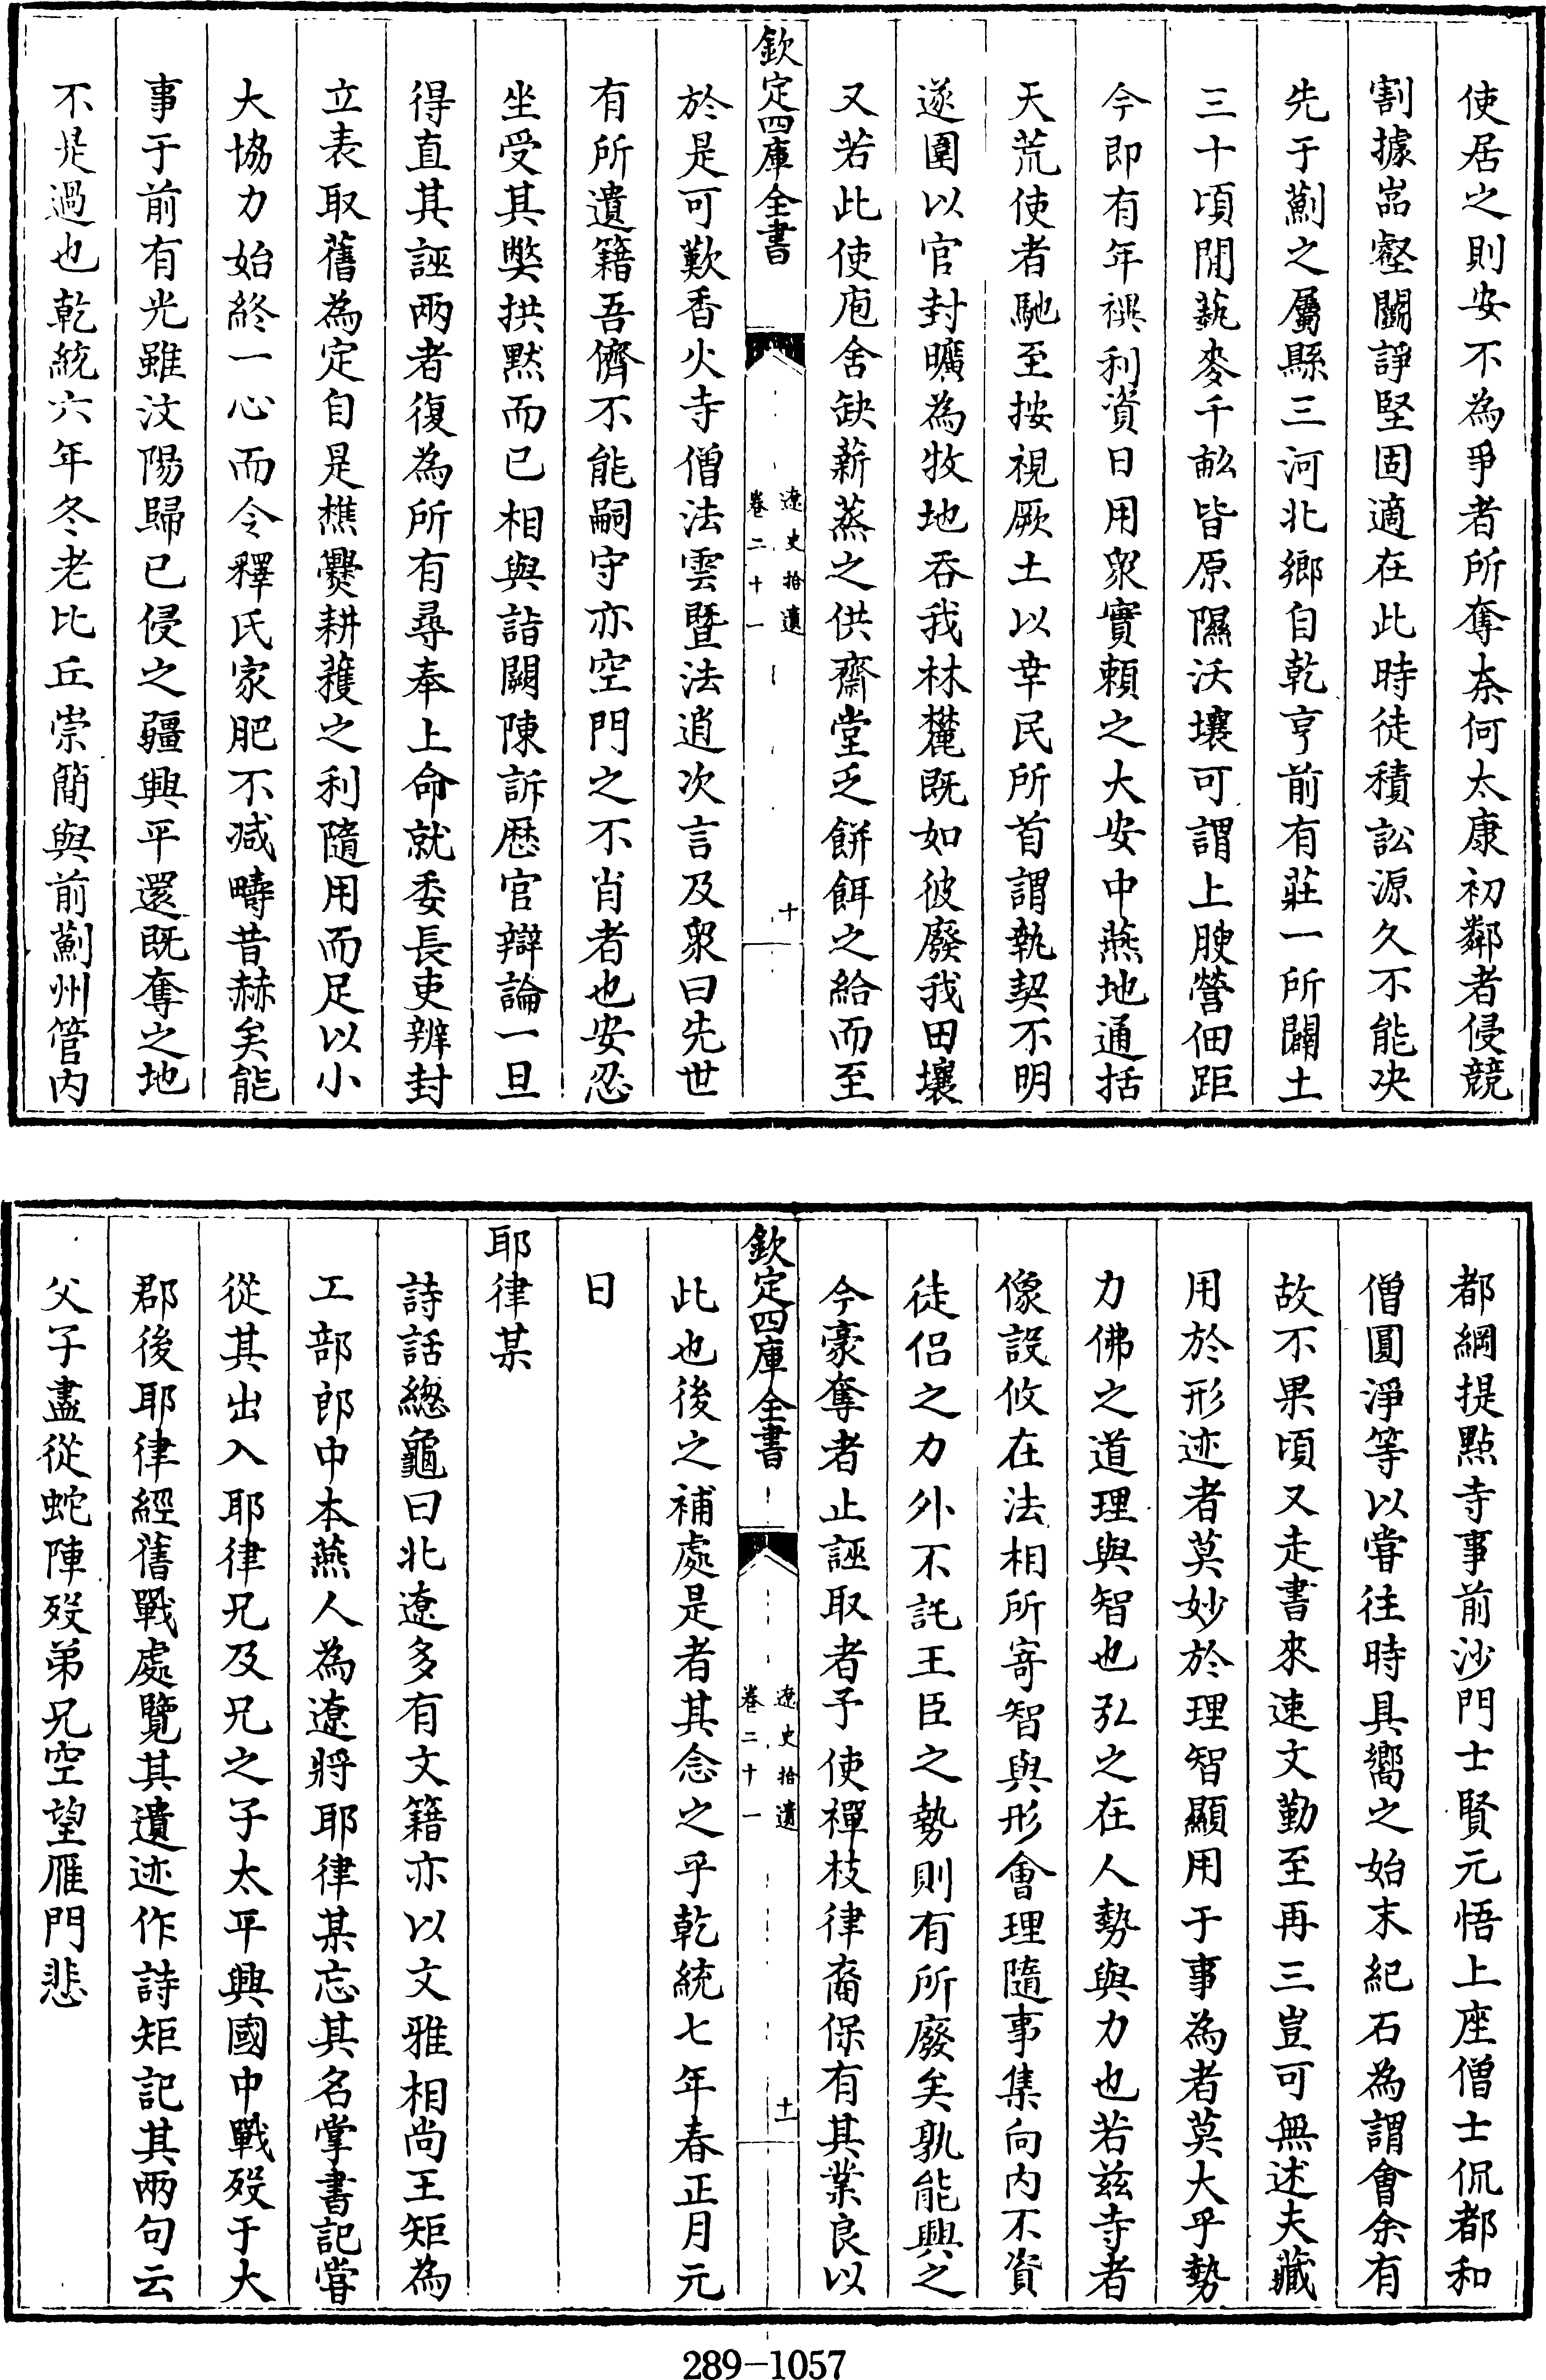 使居之則安不為爭者所奪柰何太康初鄰者侵競
割據嵓壑鬭諍堅固適在此時徒積訟源久不能决
先于薊之屬縣三河北鄉自乾亨前有莊一所闢土
三十頃閒蓺麥千畝皆原隰沃壤可謂上腴營佃距
今即有年禩利資日用衆實賴之大安中燕地通括
天荒使者馳至按視厥土以幸民所首謂執契不明
遂圍以官封曠為牧地吞我林麓既如彼廢我田壤
又若此使庖舍缺薪蒸之供齋堂乏餅餌之給而至
欽定四庫全書
遼史拾遺
卷二十一
十
於是可歎香火寺僧法雲暨法逍次言及衆曰先世
有所遺籍吾儕不能嗣守亦空門之不肖者也安忍
坐受其弊拱黙而已相與詣闕陳訴歴官辯論一旦
得直其誣兩者復為所有尋奉上命就委長吏辨封
立表取舊為定自是樵爨耕穫之利隨用而足以小
大協力始終一心而令釋氏家肥不减疇昔赫矣能
事于前有光雖汶陽歸已侵之疆興平還既奪之地
不是過也乾統六年冬老比丘崇簡與前薊州管内
都綱提點寺事前沙門士賢元悟上座僧士侃都和
僧圓淨等以嘗往時具嚮之始末紀石為謂會余有
故不果頃又走書來速文勤至再三豈可無述夫藏
用於形迹者莫妙於理智顯用于事為者莫大乎勢
力佛之道理與智也弘之在人勢與力也若兹寺者
像設攸在法相所寄智與形會理隨事集向内不資
徒侣之力外不託王臣之勢則有所廢矣孰能興之
今豪奪者止誣取者予使禪枝律裔保有其業良以
欽定四庫全書
遼史拾遺
卷二十一
十一
此也後之補處是者其念之乎乾統七年春正月元
日
耶律某
詩話總龜曰北遼多有文籍亦以文雅相尚王矩為
工部郎中本燕人為遼將耶律某忘其名掌書記嘗
從其出入耶律兄及兄之子太平興國中戰歿于大
郡後耶律經舊戰處覽其遺迹作詩矩記其兩句云
父子盡從蛇陣歿弟兄空望雁門悲
289-1057